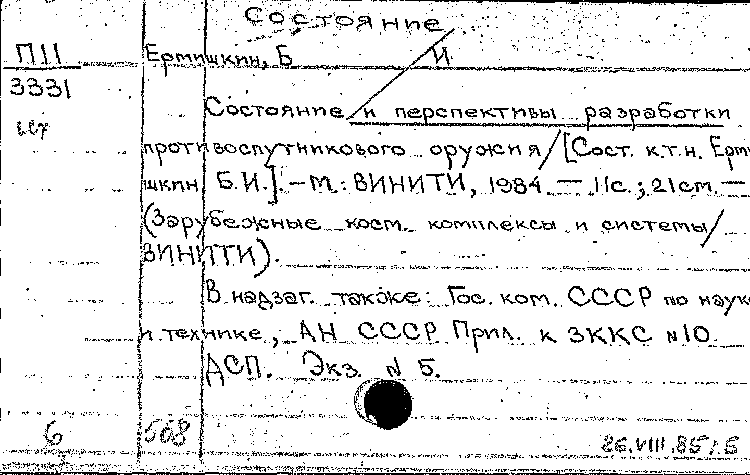 Состояние
П11 Ермишкин, Б И
3331
Состояние и перспективы разработки
противоспутникового оружия/[Сост. к.т.н. Ерми
шкин Б.И.]. – М.: ВИНИТИ, 1984. – 11с.; 21см. –
(Зарубежные косм. комплексы и системы/
ВИНИТИ).
В надзаг. также: Гос. ком. СССР по науке
и технике, АН СССР Прил. к ЗККС №10
ДСП. Экз. № 5.
6 568
26.VIII.85г. Б